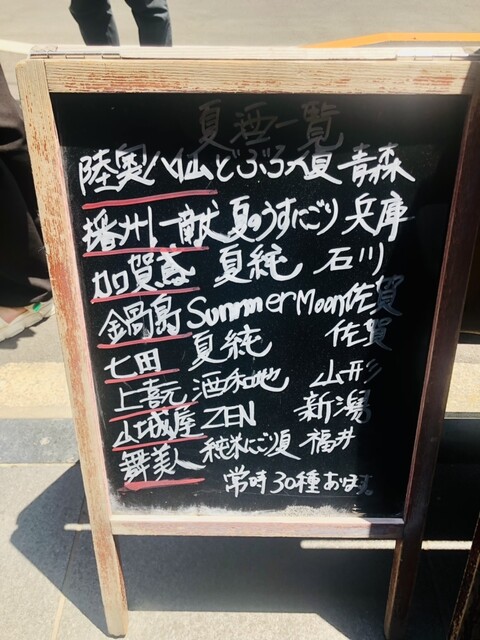 夏酒一覧
陸奥八仙どぶろく夏 青森
播州一献 夏のうすにごり 兵庫
加賀鳶 夏純 石川
鍋島 Summer Moon 佐賀
七田 夏純 佐賀
上喜元 酒和地 山形
山城屋 ZEN 新潟
舞美人 純米にごり夏 福井
常時30種あります。